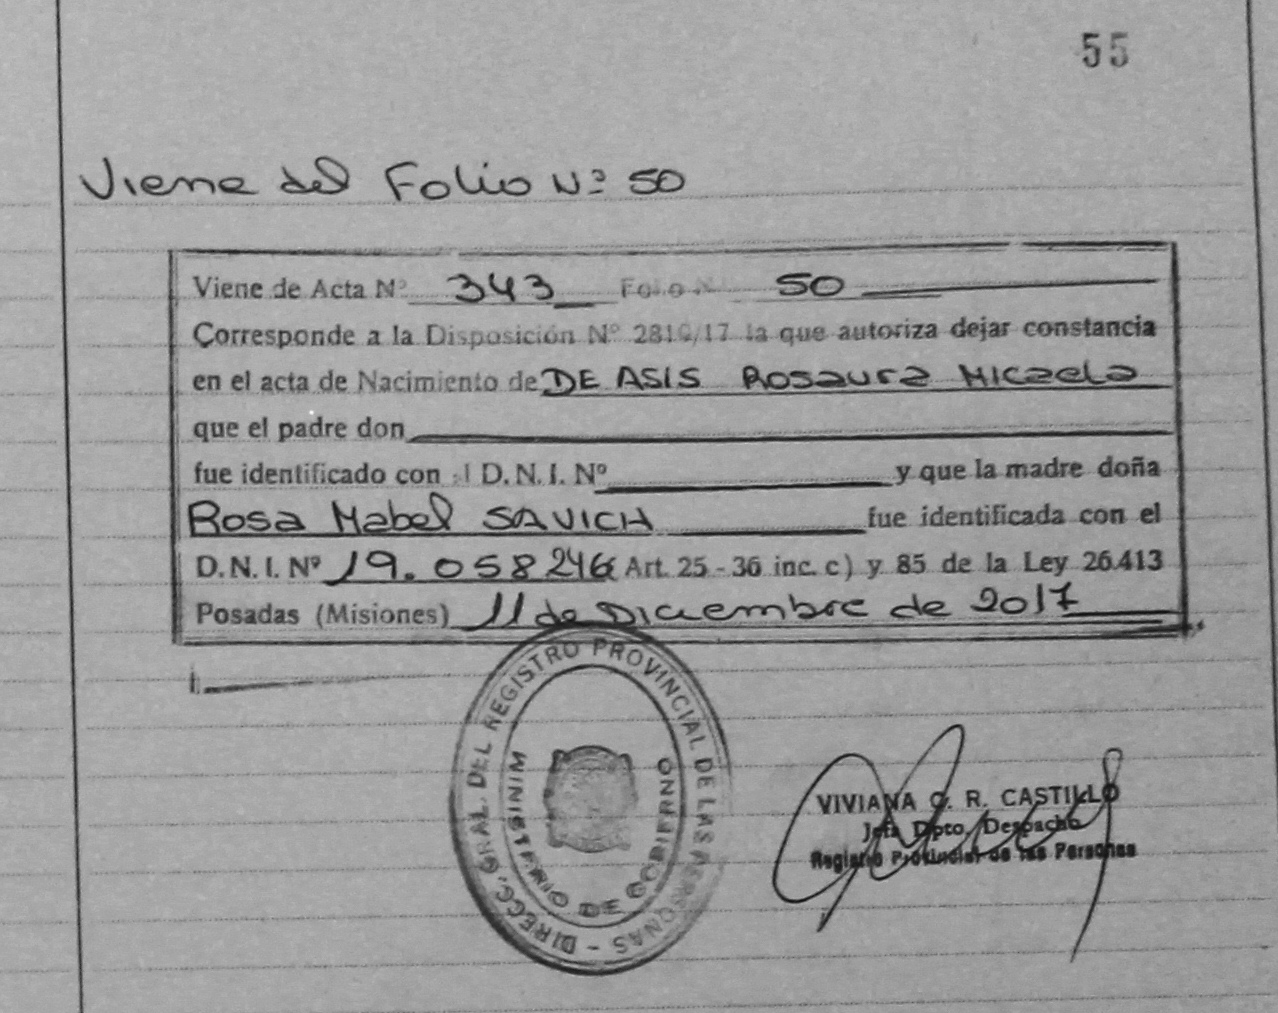 55
Viene del Folio Nº 50
Viene de Acta Nº 343 Folio N 50
Corresponde a la Disposición Nº /17 la que autoriza dejar constancia
en el acta de Nacimiento de DE ASIS Rosaura Micaela
que el padre don
fue identificado con el D.N.I. Nº y que la madre doña
Rosa Mabel SAVICH fue identificada con el
D.N.I. Nº 19.058246 (Art. 25 - 36 inc. c) y 85 de la Ley 26.413
Posadas (Misiones) 11 de Diciembre de 2017
DIRECC. GRAL. DEL REGISTRO PROVINCIAL DE LAS PERSONAS -
MINISTERIO DE GOBIERNO
VIVIANA G. R. CASTILLO
Jefa Dpto. Despacho
Registro Provincial de las Personas